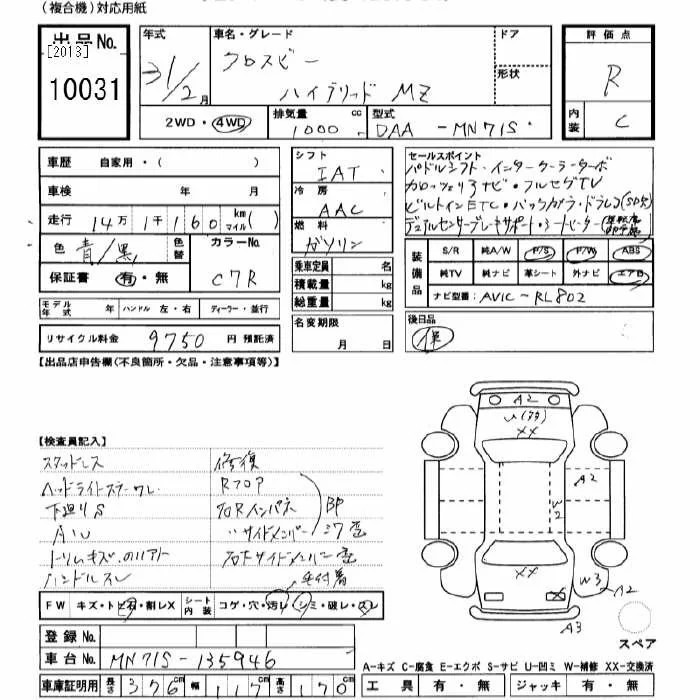 (複合機)対応用紙
出品No.
[2013]
10031
年式
31/2月
車名・グレード
クロスビー
ハイブリッド MZ
ドア
形状
2WD・4WD
排気量
1000 cc
型式
DAA-MN71S
評価点
R
内装
C
車歴 自家用・( )
車検 年 月
走行 14万1千160 km マイル( )
色 青/黒 色替
カラーNo.
C7R
保証書 有・無
モデル年式 年 ハンドル 左・右 ディーラー・並行
リサイクル料金 9750 円 預託済
シフト
IAT
冷房
AAC
燃料
ガソリン
乗車定員 名
積載量 kg
総重量 kg
名変期限
月 日
セールスポイント
パドルシフト・インタークーラーターボ
カロッツェリアナビ・フルセグTV
ビルトインETC・バックカメラ・ドラレコ(SD欠)
デュアルセンサーブレーキサポート・シートヒーター
装備品
S/R 純A/W P/S P/W ABS
純TV 純ナビ 革シート 外ナビ エアB
ナビ型番: AVIC-RL802
後日品
保
【出品店申告欄(不良箇所・欠品・注意事項等)】
【検査員記入】
スタッドレス
ヘッドライトスレ ワレ
下廻りS
AU
トリムキズ
ハンドルスレ
修復
右Rインパネ
BP
〃サイドメンバー
右Fサイドメンバー
FW キズ・トビ石・割レX シート内装 コゲ・穴・汚レ・シミ・破レ・スレ
登録No.
車台No. MN71S-135946
車庫証明用 長さ 376cm 幅 117cm 高さ 170cm
A2
U
XX
A2
W2
XX
X
W3
A2
A3
スペア
A-キズ C-腐食 E-エクボ S-サビ U-凹ミ W-補修 XX-交換済
工具 有・無 ジャッキ 有・無